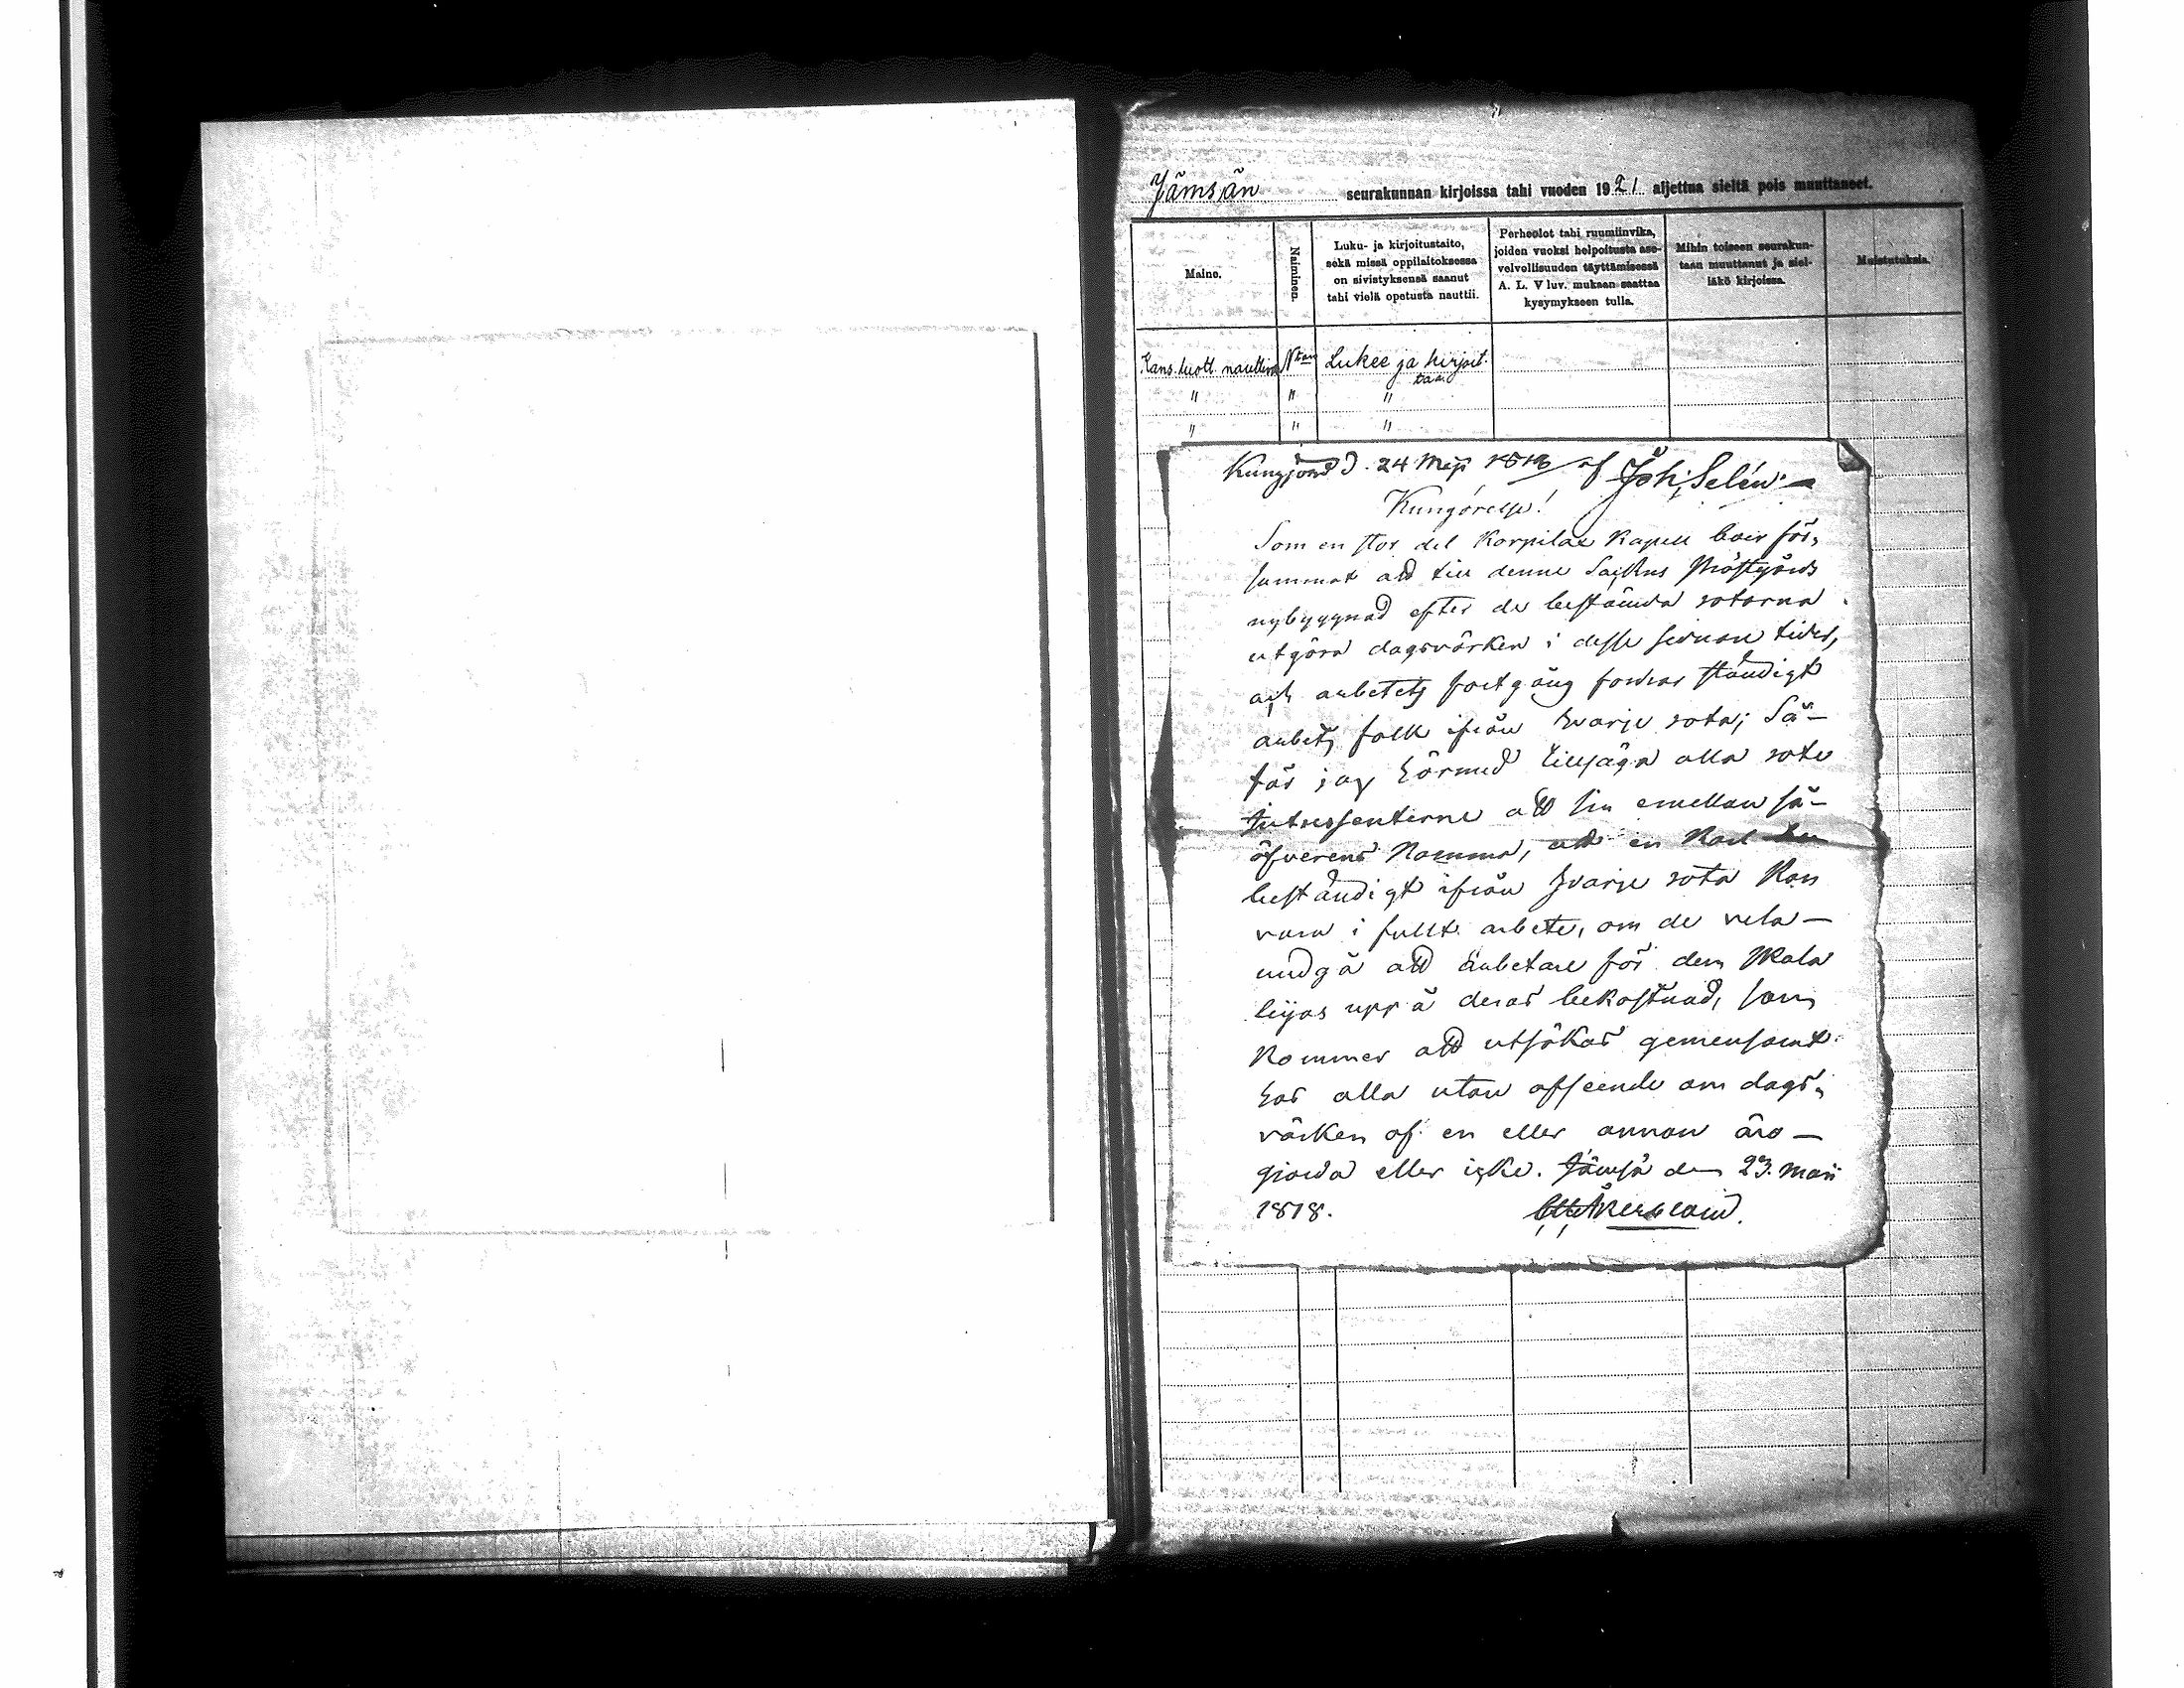 Jämsän seurakunnan kirjoissa tahi vuoden 1921 aljettua sieltä pois muuttaneet.
Maine.
Naiminen.
Luku- ja kirjoitustaito,
sekä missä oppilaitoksessa
on sivistyksensä saanut
tahi vielä opetusta nauttii.
Perheolot tahi ruumiinvika,
joiden vuoksi helpoitusta ase-
velvollisuuden täyttämisessä
A. L. V luv. mukaan saattaa
kysymykseen tulla.
Mihin toiseen seurakun-
taan muuttanut ja siel-
läkö kirjoissa.
Muistutuksia.
Kans. luott. nauttiva Ntön Lukee ja kirjoit.
taa
" " "
" " "
Kungjord d. 24 Maji 1818 af Joh; Selin
Kungörelse!
Som en stor del Korpilax Kapell boer för,
summat att till denne Sockns Prästgårds
nybyggnad efter de bestämda rotorna
utgöra dagsvärken i desse sednare tider,
och arbetets fortgång fordrar ständigt
arbets folk ifrån hvarje rota; Så-
får jag härmed tillsäga alla rote
Intressenterne att sin emellan så-
öfverens komma, att en Karl
beständigt ifrån hvarje rota kan
vara i fullt arbete, om de vela-
undgå att arbetare för dem skola
lejas uppå deras bekostnad, som
kommer att utsökas gemensamt
hos alla utan afseende om dags,
värken af en eller annan äro-
gjorda eller icke. Jämsä den 23. Maii
1818. Åkerblom.